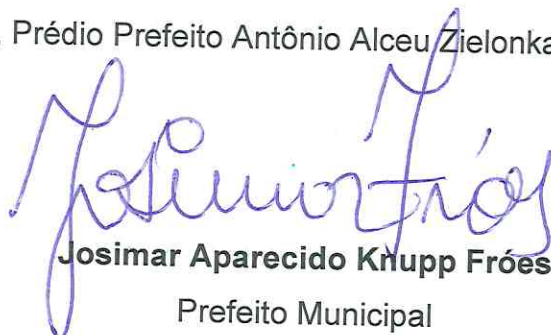 Prédio Prefeito Antônio Alceu Zielonka
Josimar Fróes
Josimar Aparecido Knupp Fróes
Prefeito Municipal